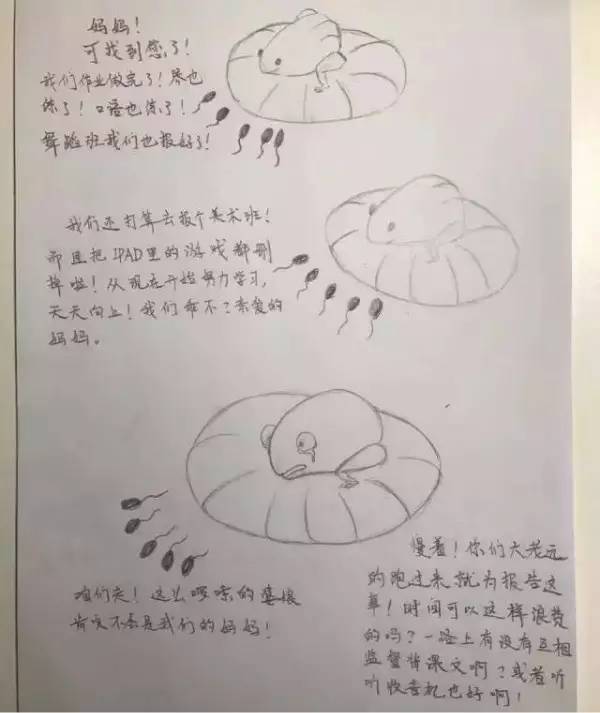 妈妈！
可找到您了！
我们作业做完了！琴也
练了！口语也练了！
舞蹈班我们也报好了！
我们还打算去报个美术班！
而且把IPAD里的游戏都删
掉啦！从现在开始努力学习，
天天向上！我们乖不？亲爱的
妈妈。
慢着！你们大老远
的跑过来就为报告这
事！时间可以这样浪费
的吗？一路上有没有互相
监督背课文啊？或者听
听收音机也好啊！
咱们走！这么啰嗦的婆娘
肯定不会是我们的妈妈！